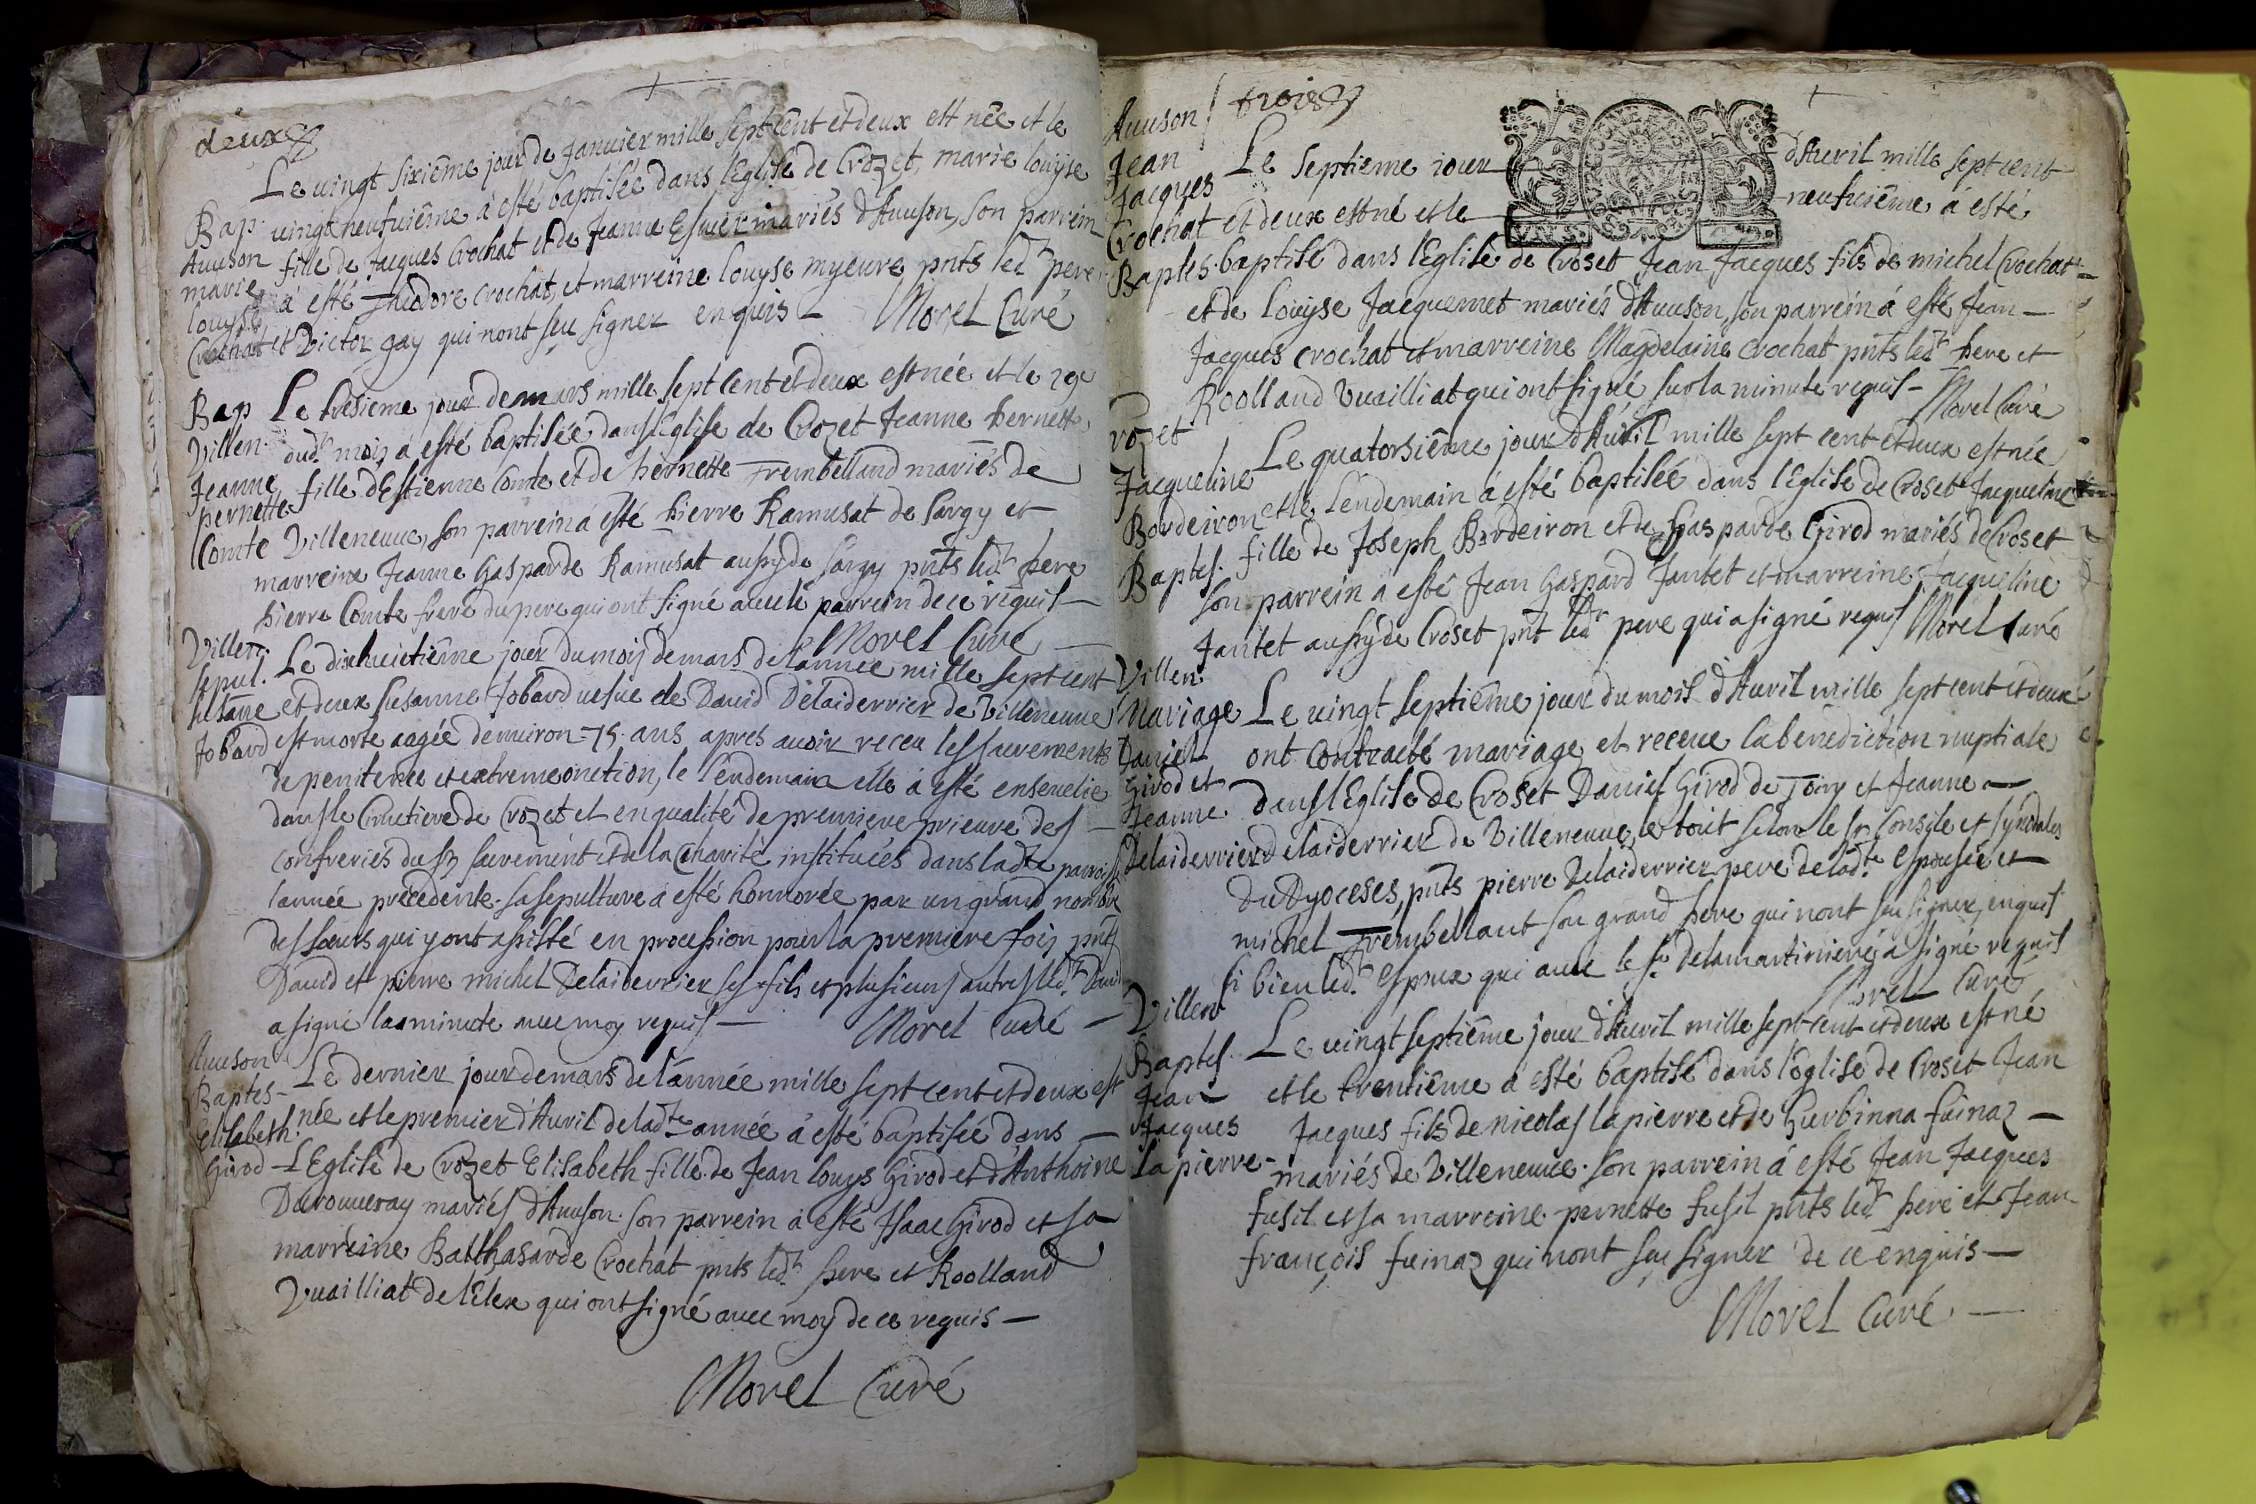 deux
Le vingt sixiême jour de Janvier mille sept cent et deux est née et le
Bap. vingt neufuiême a esté baptisée dans l'Eglise de Crozet, marie louyse
Auuson fille de Jacques Crochat et de Jeanne Esuier mariés d'Auuson, son parrein
marie à esté Theodore Crochat, et marreine louyse myeure pnts led.t pere
louyse
Crochat et Victor gay qui n'ont sçu signer enquis Morel Curé
Bap Le tresieme jour de mars mille sept cent et deux est née et le 29e
Villen. dud.t mois a esté baptisée dans l'Eglise de Crozet Jeanne Pernette
Jeanne fille d'Estienne Comte et de Pernette Trembelland mariés de
pernette
Comte Villeneuue, son parrein a esté Pierre Ramusat de Sargy et
marreine Jeanne Gasparde Ramusat aussy de Sargy pnts led.t Pere
Pierre Comte frere du pere qui ont signé auec le parrein de ce requis —
Villen. Morel Curé
sepul. Le dixhuictiême jour du mois de mars de l'année mille sept cent
susanne et deux susanne Jobard uefue de Dauid Delaiderrier de Villeneuue
Jobard est morte aagée d'enuiron 75. ans apres auoir receu les sacrements
de penitence et extremeonction, le l'endemain elle a esté enseuelie
dans le Cimetiere de Crozet et en qualité de premiere prieure des —
confreries du St sacrement et de la Charité instituées dans lad.te parroisse
l'année précedente. sa sepulture a esté honnorée par un grand nombre
des soeurs qui y ont assisté en procession pour la premiere fois pnts
Dauid et pierre michel Delaiderrier ses fils et plusieurs autres led.t Dauid
a signé la minute auec moy requis — Morel Curé —
Auuson
Baptes- Le dernier jour de mars de l'année mille sept cent et deux est
Elisabeth. née et le premier d'Auril de lad.te année a esté baptisée dans —
Girod - L'Eglise de Crozet Elisabeth fille de Jean louys Girod et d'Anthoine
Duvouueray mariés d'Auuson. son parrein a esté Isaac Girod et sa
marreine Balthasarde Crochat pnts led.t Pere et Roolland
Vuailliat de lélex qui ont signé auec moy de ce requis —
Morel Curé
trois
Auuson
Jean Le septieme iour d'Auril mille sept cent
Jacques
Crochat et deux est né et le neufuiême a esté
Baptes. baptisé dans l'Eglise de Croset Jean Jacques fils de michel Crochat
et de louyse Jacquemet mariés d'Auuson, son parrein á esté Jean —
Jacques Crochat et marreine Magdelaine Crochat pnts led.t Pere et
Roolland Vuailliat qui ont signé sur la minute requis — Morel Curé
Crozet Le quatorsiême jour d'Auril mille sept cent et deux est née
Jacqueline et le l'endemain á esté baptisée dans l'Eglise de Croset Jacqueline
Bordeiron fille de Joseph Bordeiron et de Gasparde Girod mariés de Croset
Baptes. son parrein à esté Jean Gaspard Jantet et marreine Jacqueline
Jantet aussy de Croset pnt led.t pere qui a signé requis Morel Curé
Villen.
Mariage Le vingt septiême jour du mois d'Auril mille sept cent et deux
Daniel ont contracté mariage et receue la benediction nuptiale
Girod et
Jeanne dans l'Eglise de Croset Daniel Girod de Toiry et Jeanne —
Delaiderrier Delaiderrier de Villeneuue, le tout selon le St Consile et synodales
Du Dyoceses, pnts pierre Delaiderrier pere de lad.te Espousée et
michel Trembellant son grand Pere qui n'ont sçu signer, enquis
si bien led.t Espoux qui auec le Sr Delamartiniere a signé requis
Morel Curé
Villen
Baptes. Le vingt septiême jour d'Auril mille sept cent et deux est né
Jean et le trentiême a esté baptisé dans l'Eglise de Croset Jean
Jacques Jacques fils de nicolas lapierre et de Gurbinna fuinaz —
La pierre - mariés de Villeneuue. son parrein á esté Jean Jacques
fusil et sa marreine pernette fusil pnts led.t Pere et Jean
françois fuinaz qui n'ont sçu signer de ce enquis —
Morel Curé. —